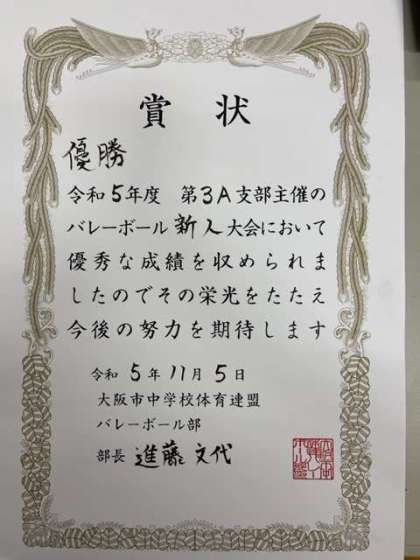 賞状
優勝
令和5年度 第3A支部主催の
バレーボール新人大会において
優秀な成績を収められま
したのでその栄光をたたえ
今後の努力を期待します
令和5年11月5日
大阪市中学校体育連盟
バレーボール部
部長 進藤文代